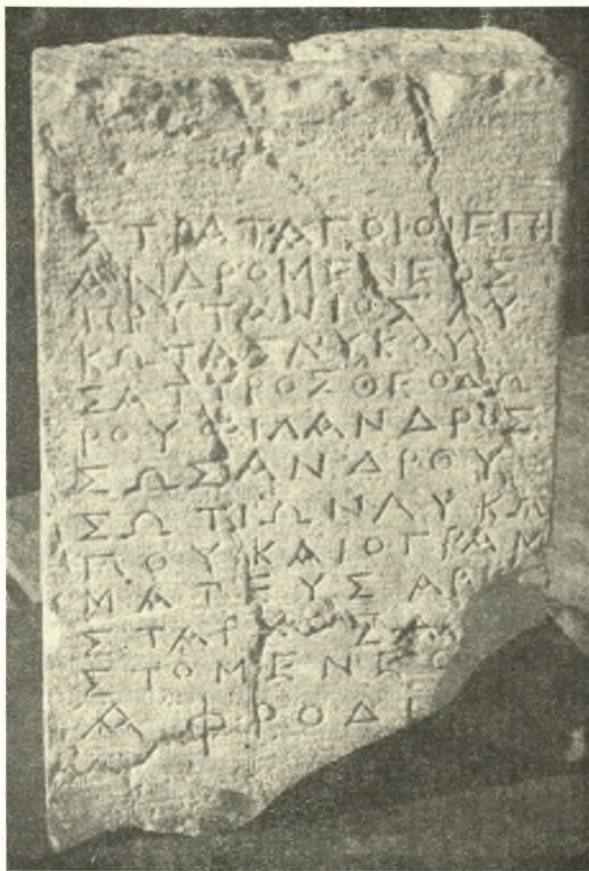 ΣΤΡΑΤΑΓΟΙΟΙΕΠΙ
ΑΝΔΡΟΜΕΝΕΟΣ
ΠΡΥΤΑΝΙΟΣΛΥ
ΚΩΤΑΣΛΥΚΟΥ
ΣΑΤΥΡΟΣΘΕΟΔΩ
ΡΟΥΦΙΛΑΝΔΡΟΣ
ΣΩΣΑΝΔΡΟΥ
ΣΩΤΙΩΝΛΥΚΩ
ΠΟΥΚΑΙΟΓΡΑΜ
ΜΑΤΕΥΣ ΑΡΙ
ΣΤΑΡΧΟΣ
ΣΤΟΜΕΝΕΟ
ΑΦΡΟΔΙ